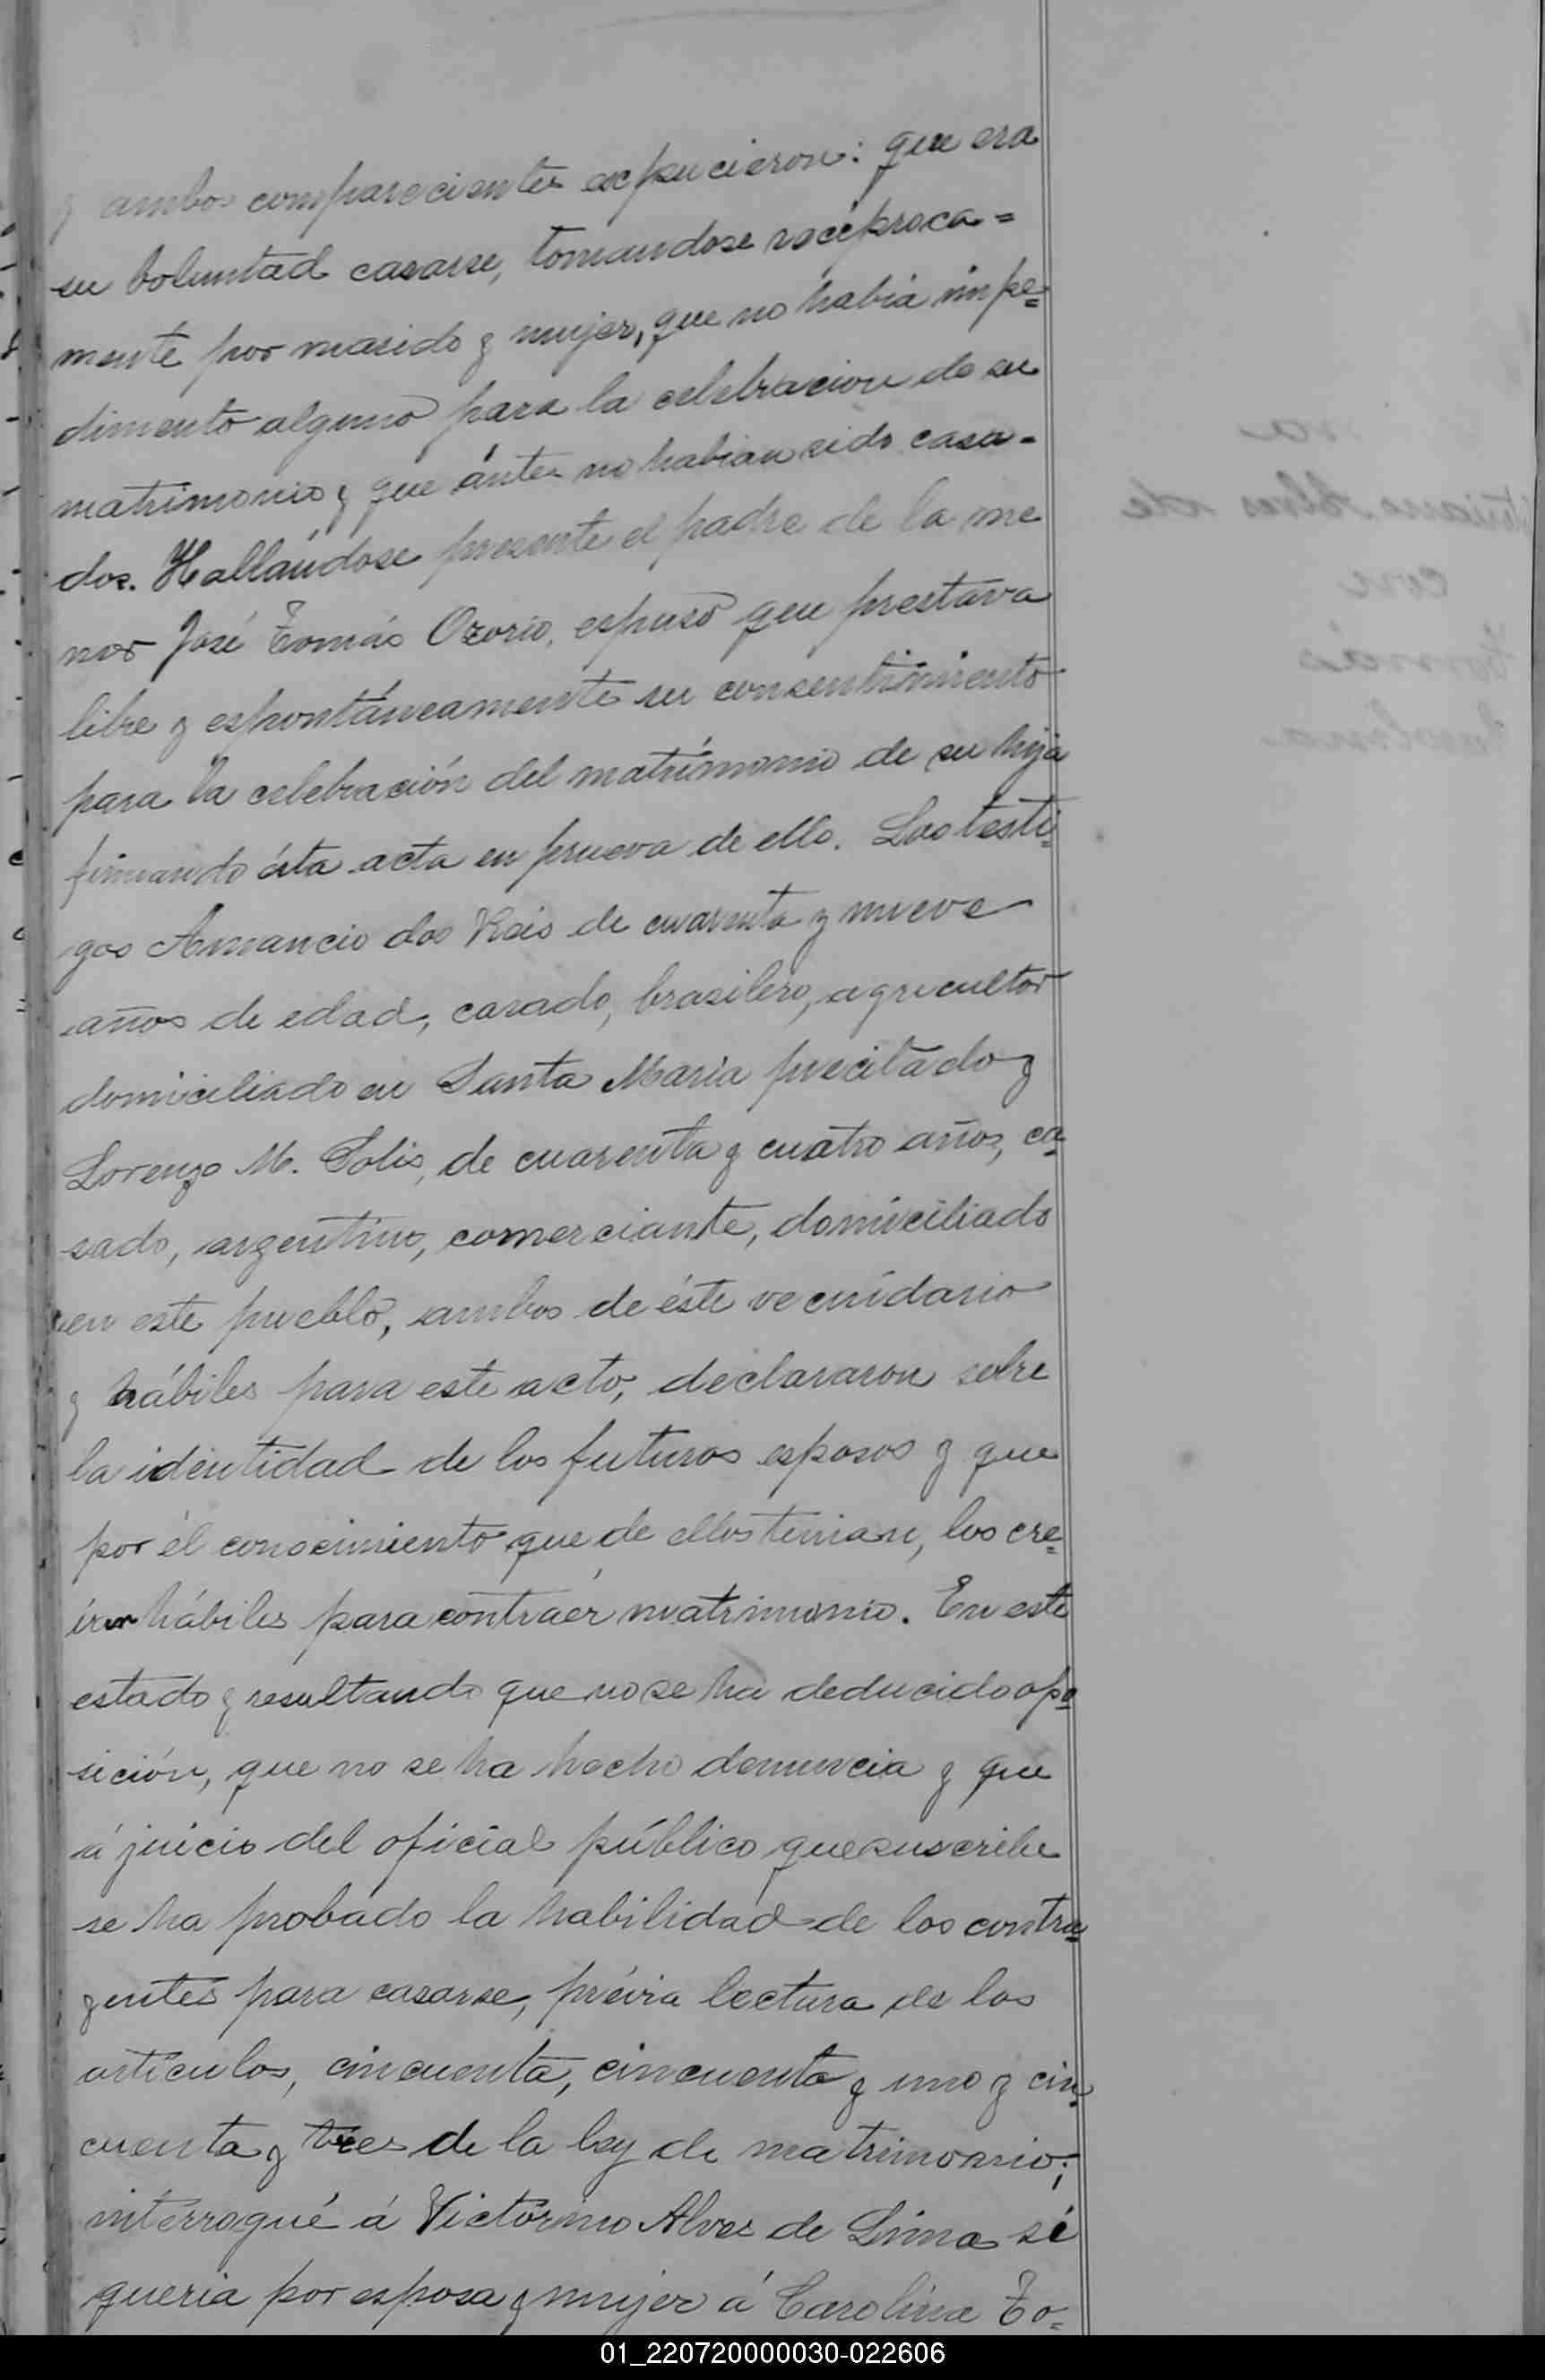 y ambos comparecientes expucieron: que era
su boluntad casarse, tomandose recíproca=
mente por marido y mujer, que no habia impe=
dimento alguno para la celebracion de su
matrimonio y que ántes no habian sido casa=
dos. Hallándose presente el padre de la me
nor José Tomás Ozorio, espuso que prestava
libre y espontáneamente su consentimiento
para la celebración del matrimonio de su hija
firmando ésta acta en prueva de ello. Los testi=
gos Amancio dos Reis de cuarenta y nueve
años de edad, casado, brasilero, agricultor
domiciliado en Santa Maria precitado y
Lorenzo M. Solis, de cuarenta y cuatro años, ca=
sado, argentino, comerciante, domiciliado
en este pueblo, ambos de éste vecindario
y hábiles para este acto, declararon sobre
la identidad de los futuros esposos y que
por el conocimiento que de ellos tenian, los cre=
ian hábiles para contraer matrimonio. En este
estado y resultando que no se ha deducido opo=
sición, que no se ha hecho denuncia y que
á juicio del oficial público que suscribe
se ha probado la habilidad de los contra=
yentes para casarse, prévia lectura de los
artículos, cincuenta, cincuenta y uno y cin=
cuenta y tres de la ley de matrimonio;
interrogué á Victorino Alves de Lima si
queria por esposa y mujer á Carolina To=
01_220720000030-022606